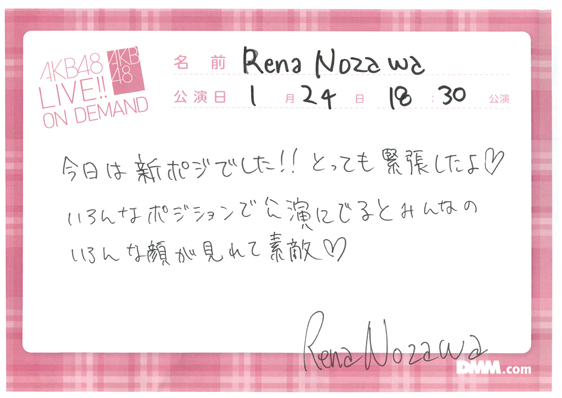 AKB48
LIVE!!
ON DEMAND
AKB
48
名前 Rena Nozawa
公演日 1月24日 18:30公演
今日は新ポジでした!! とっても緊張したよ♡
いろんなポジションで公演にでるとみんなの
いろんな顔が見れて素敵♡
Rena Nozawa
DMM.com